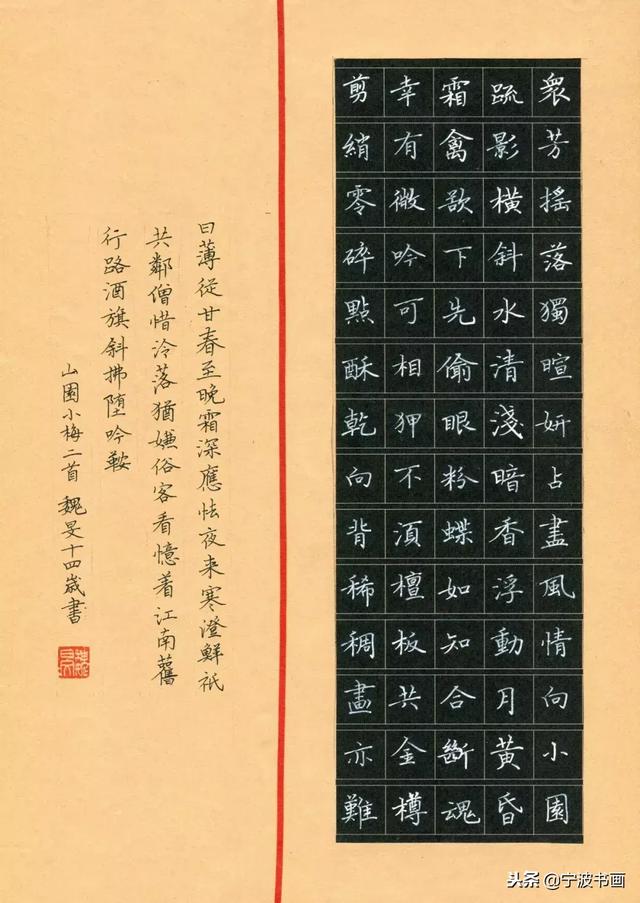 衆芳搖落獨暄妍占盡風情向小園
疏影橫斜水清淺暗香浮動月黃昏
霜禽欲下先偷眼粉蝶如知合斷魂
幸有微吟可相狎不須檀板共金樽
剪綃零碎點酥乾向背稀稠畫亦難
日薄從甘春至晚霜深應怯夜来寒澄鮮祇
共鄰僧惜冷落猶嫌俗客看憶着江南舊
行路酒旗斜拂墮吟鞍
山園小梅二首 魏旻十四歲書
头条@宁波书画